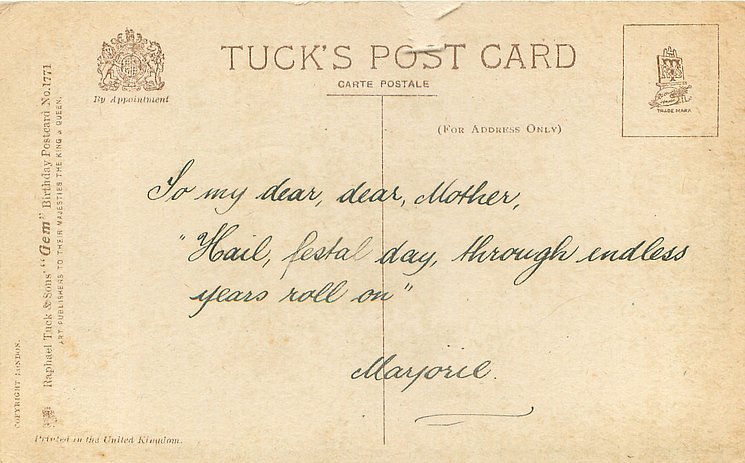 TUCK'S POST CARD
CARTE POSTALE
By Appointment
(FOR ADDRESS ONLY)
TRADE MARK
To my dear, dear, Mother,
"Hail, festal day, through endless
years roll on"
Marjorie.
Raphael Tuck & Sons' "Gem" Birthday Postcard No.1771
ART PUBLISHERS TO THEIR MAJESTIES THE KING & QUEEN.
COPYRIGHT LONDON.
Printed in the United Kingdom.